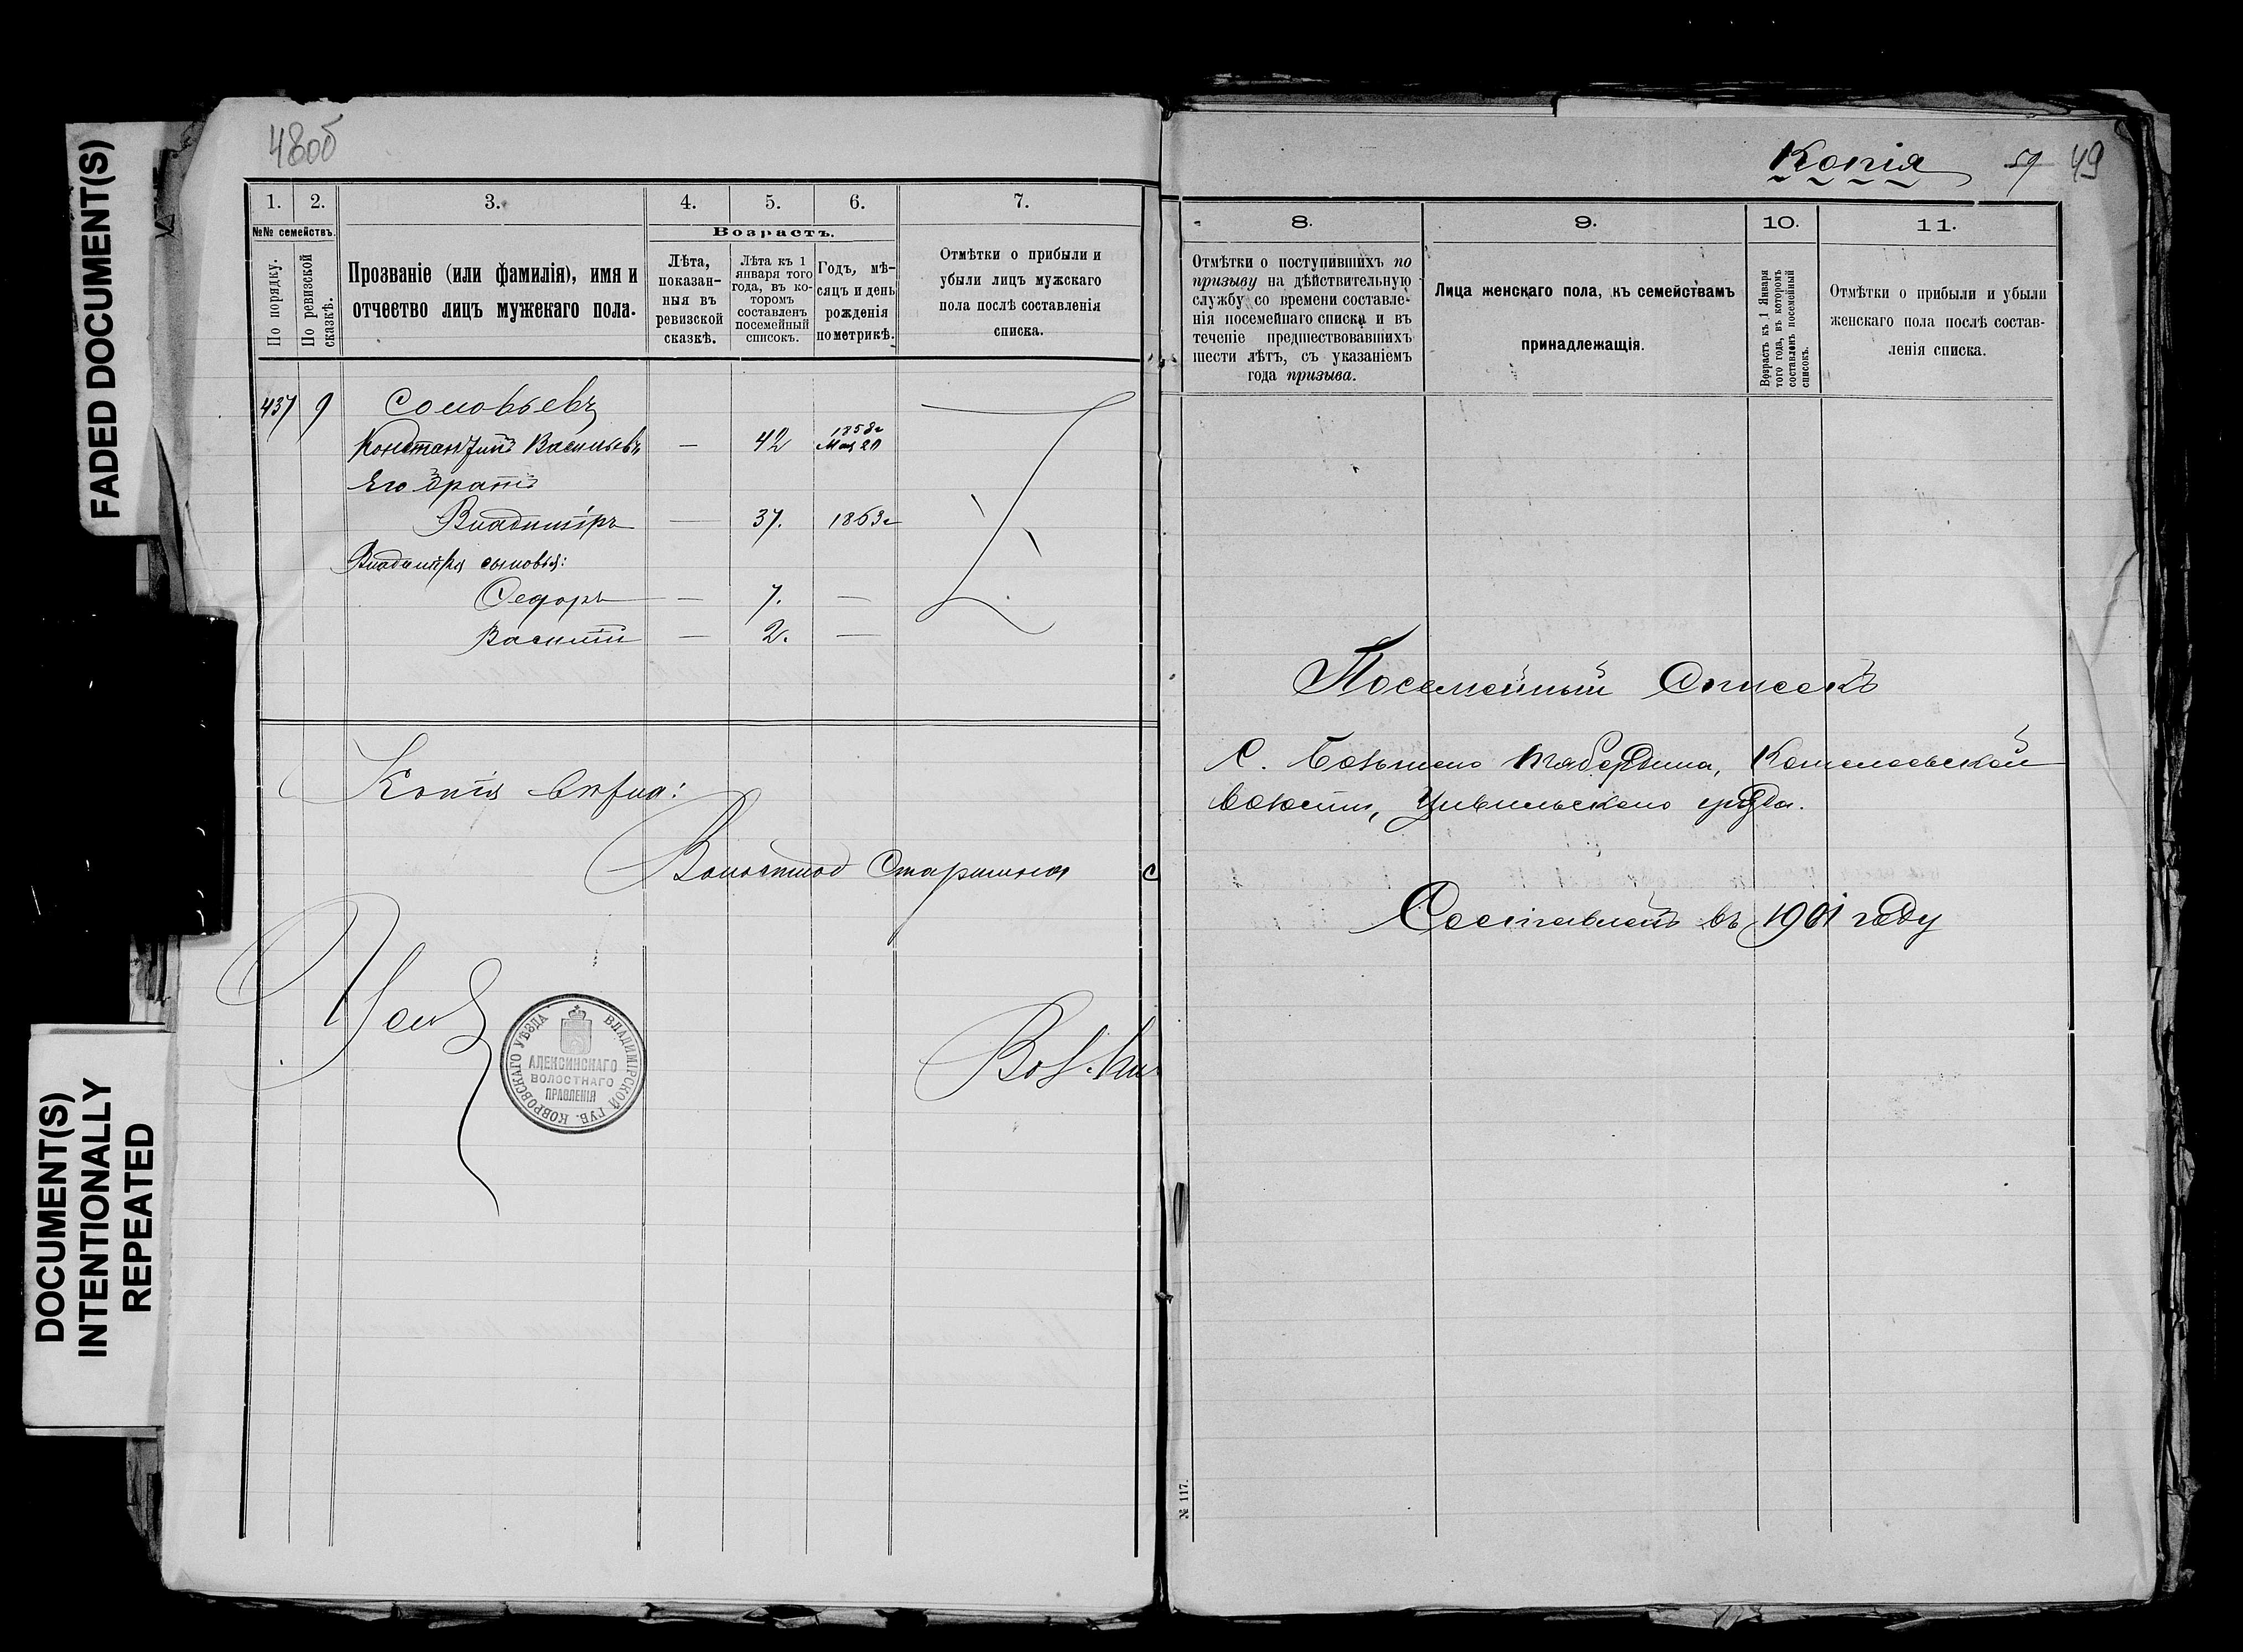 FADED DOCUMENT(S)
DOCUMENT(S)
INTENTIONALLY
REPEATED
48об
1. 2. 3. 4. 5. 6. 7.
№№ семействъ.
По порядку.
По ревизской сказкѣ.
Прозваніе (или фамилія), имя и
отчество лицъ мужскаго пола.
Возрастъ.
Лѣта,
показан-
ныя въ
ревизской
сказкѣ.
Лѣта къ 1
января того
года, въ ко-
торомъ
составленъ
посемейный
списокъ.
Годъ, мѣ-
сяцъ и день
рожденія
по метрикѣ.
Отмѣтки о прибыли и
убыли лицъ мужскаго
пола послѣ составленія
списка.
437 9 Соловьевъ
Константинъ Васильевъ — 42 1858г Мая 20
Его братъ
Владиміръ — 37. 1863г
Владиміра сыновья:
Федоръ — 7. —
Василій — 2. —
Копія вѣрна:
Волостной Старшина
ВЛАДИМІРСКОЙ ГУБ. КОВРОВСКАГО УѢЗДА
АЛЕКСИНСКАГО
ВОЛОСТНАГО
ПРАВЛЕНІЯ
Копія 59 49
8. 9. 10. 11.
Отмѣтки о поступившихъ по
призыву на дѣйствительную
службу со времени составле-
нія посемейнаго списка и въ
теченіе предшествовавшихъ
шести лѣтъ, съ указаніемъ
года призыва.
Лица женскаго пола, къ семействамъ
принадлежащія.
Возрастъ къ 1 Января
того года, въ которомъ
составленъ посемейный
списокъ.
Отмѣтки о прибыли и убыли
женскаго пола послѣ состав-
ленія списка.
Посемейный Списокъ
С. Большого Шабердина, Кошелеевской
волости, Цивильскаго уѣзда.
Составленъ въ 1901 году
№ 117.